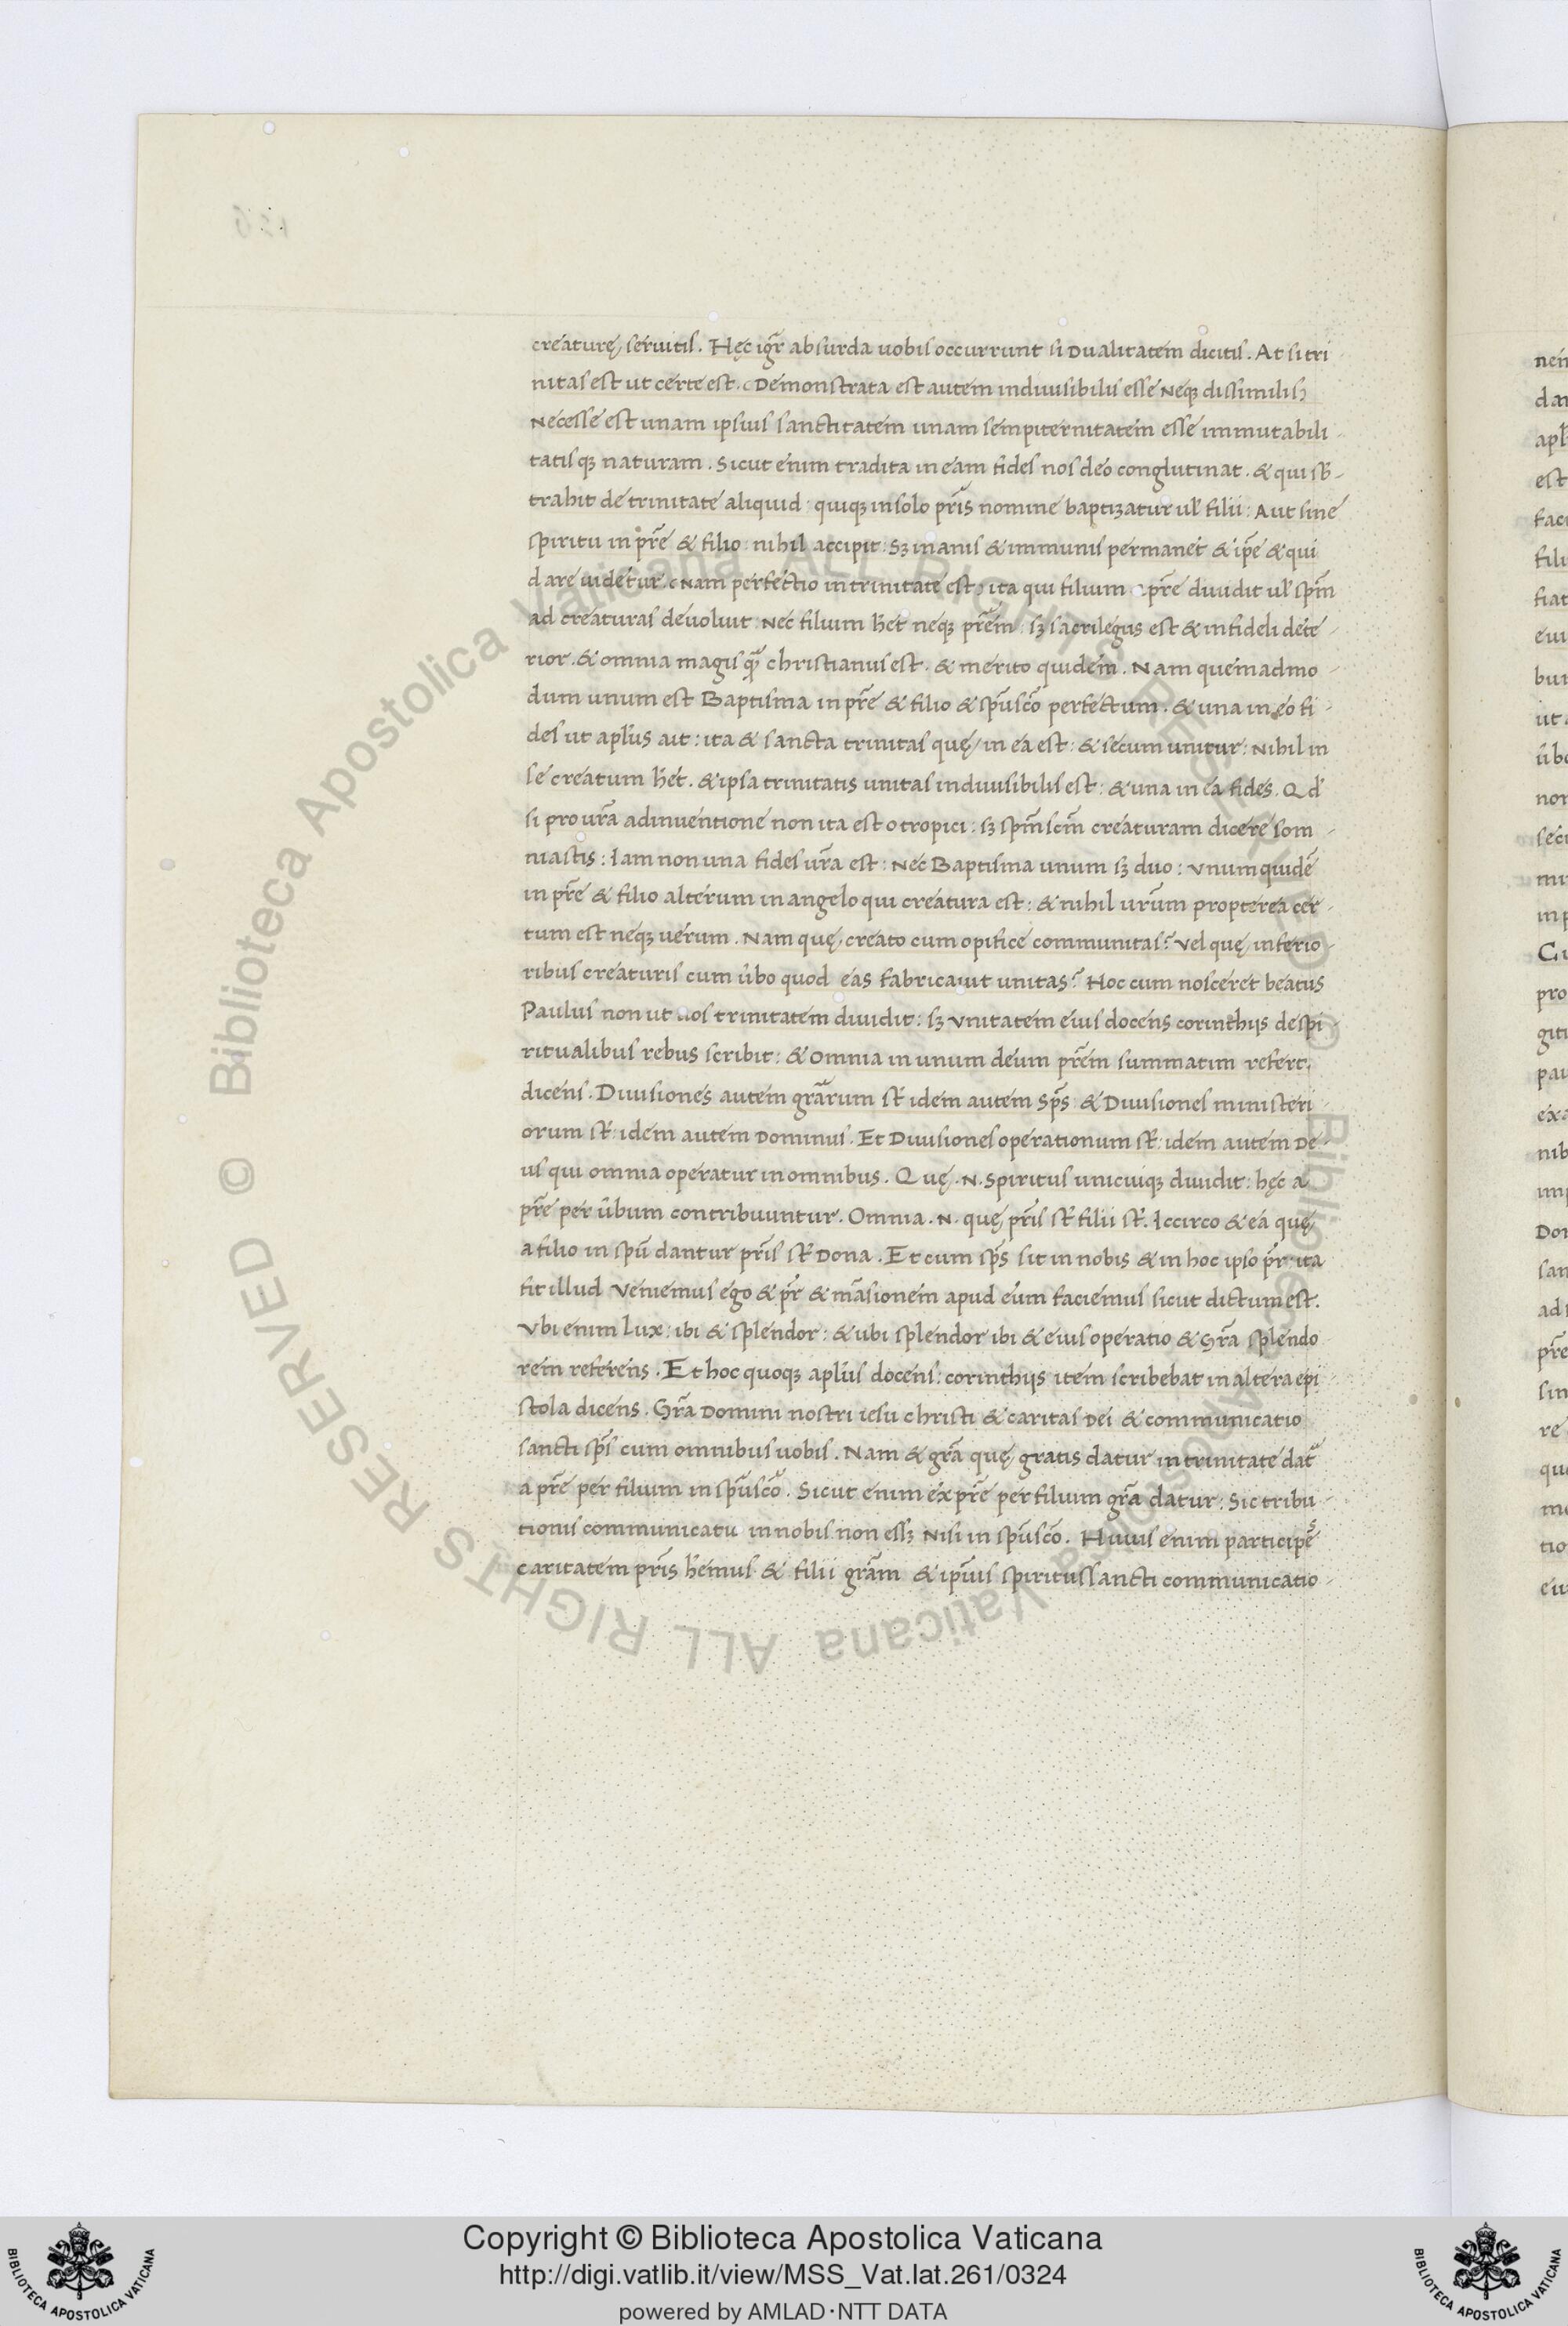 creaturę seruitis. Hęc igr̃ absurda uobis occurrunt si Dualitatem dicitis. At si tri-
nitas est ut certe est. Demonstrata est autem indiuisibilis esse Neq; dissimilis,
Necesse est unam ipsius sanctitatem unam sempiternitatem esse immutabili-
tatisq; naturam. Sicut enim tradita in eam fides nos deo conglutinat. & qui sb̃-
trahit de trinitate aliquid: quiq; in solo pr̃is nomine baptizatur ul' filii: Aut sine
spiritu in pr̃e & filio: nihil accipit: Sz inanis & immunis permanet & ip̃e & qui
dare uidetur. Nam perfectio in trinitate est, ita qui filium a pr̃e diuidit ul' sp̃m
ad creaturas deuoluit: Nec filium h̃et neq; pr̃em: sz sacrilegus est & infideli dete-
rior. & omnia magis q̃ christianus est. & merito quidem. Nam quemadmo-
dum unum est Baptisma in pr̃e & filio & sp̃uscõ perfectum. & una in eo fi-
des ut apl'us ait: ita & sancta trinitas quę in ea est: & secum unitur: Nihil in
se creatum h̃et. & ipsa trinitatis unitas indiuisibilis est: & una in ea fides. Qd'
si pro ur̃a adinuentione non ita est o tropici: sz sp̃m scm̃ creaturam dicere som-
niastis: Iam non una fides ur̃a est: Nec Baptisma unum sz duo: Vnum quidẽ
in pr̃e & filio alterum in angelo qui creatura est: & nihil ur̃um propterea cer-
tum est neq; uerum. Nam quę creato cum opifice communitas? Vel quę inferio-
ribus creaturis cum ũbo quod eas fabricauit unitas? Hoc cum nosceret beatus
Paulus non ut uos trinitatem diuidit: sz Vnitatem eius docens corinthijs de spi-
ritualibus rebus scribit: & omnia in unum deum pr̃em summatim refert.
dicens. Diuisiones autem gr̃arum st̃ idem autem sp̃s & Diuisiones ministeri-
orum st̃: idem autem Dominus. Et Diuisiones operationum st̃: idem autem De-
us qui omnia operatur in omnibus. Quę .N. spiritus unicuiq; diuidit: hęc a
pr̃e per ũbum contribuuntur. Omnia .N. quę pr̃is st̃ filii st̃. Iccirco & ea quę
a filio in spũ dantur pr̃is st̃ Dona. Et cum sp̃s sit in nobis & in hoc ipso pr̃: ita
fit illud Veniemus ego & pr̃ & mãsionem apud eum faciemus sicut dictum est.
Vbi enim lux: ibi & splendor: & ubi splendor ibi & eius operatio & Gr̃a splendo-
rem referens. Et hoc quoq; apl'us docens: corinthijs item scribebat in altera epi-
stola dicens. Gr̃a Domini nostri iesu christi & caritas Dei & communicatio
sancti sp̃s cum omnibus uobis. Nam & gr̃a quę gratis datur in trinitate dat̃
a pr̃e per filium in sp̃uscõ. Sicut enim ex pr̃e per filium gr̃a datur: Sic tribu-
tionis communicatu in nobis non essz Nisi in sp̃uscõ. Huius enim participẽs
caritatem pr̃is h̃emus & filii gr̃am & ip̃ius spiritus sancti communicatio-
Copyright © Biblioteca Apostolica Vaticana
http://digi.vatlib.it/view/MSS_Vat.lat.261/0324
powered by AMLAD·NTT DATA
BIBLIOTECA APOSTOLICA VATICANA
BIBLIOTECA APOSTOLICA VATICANA
© Biblioteca Apostolica Vaticana ALL RIGHTS RESERVED
© Biblioteca Apostolica Vaticana ALL RIGHTS RESERVED